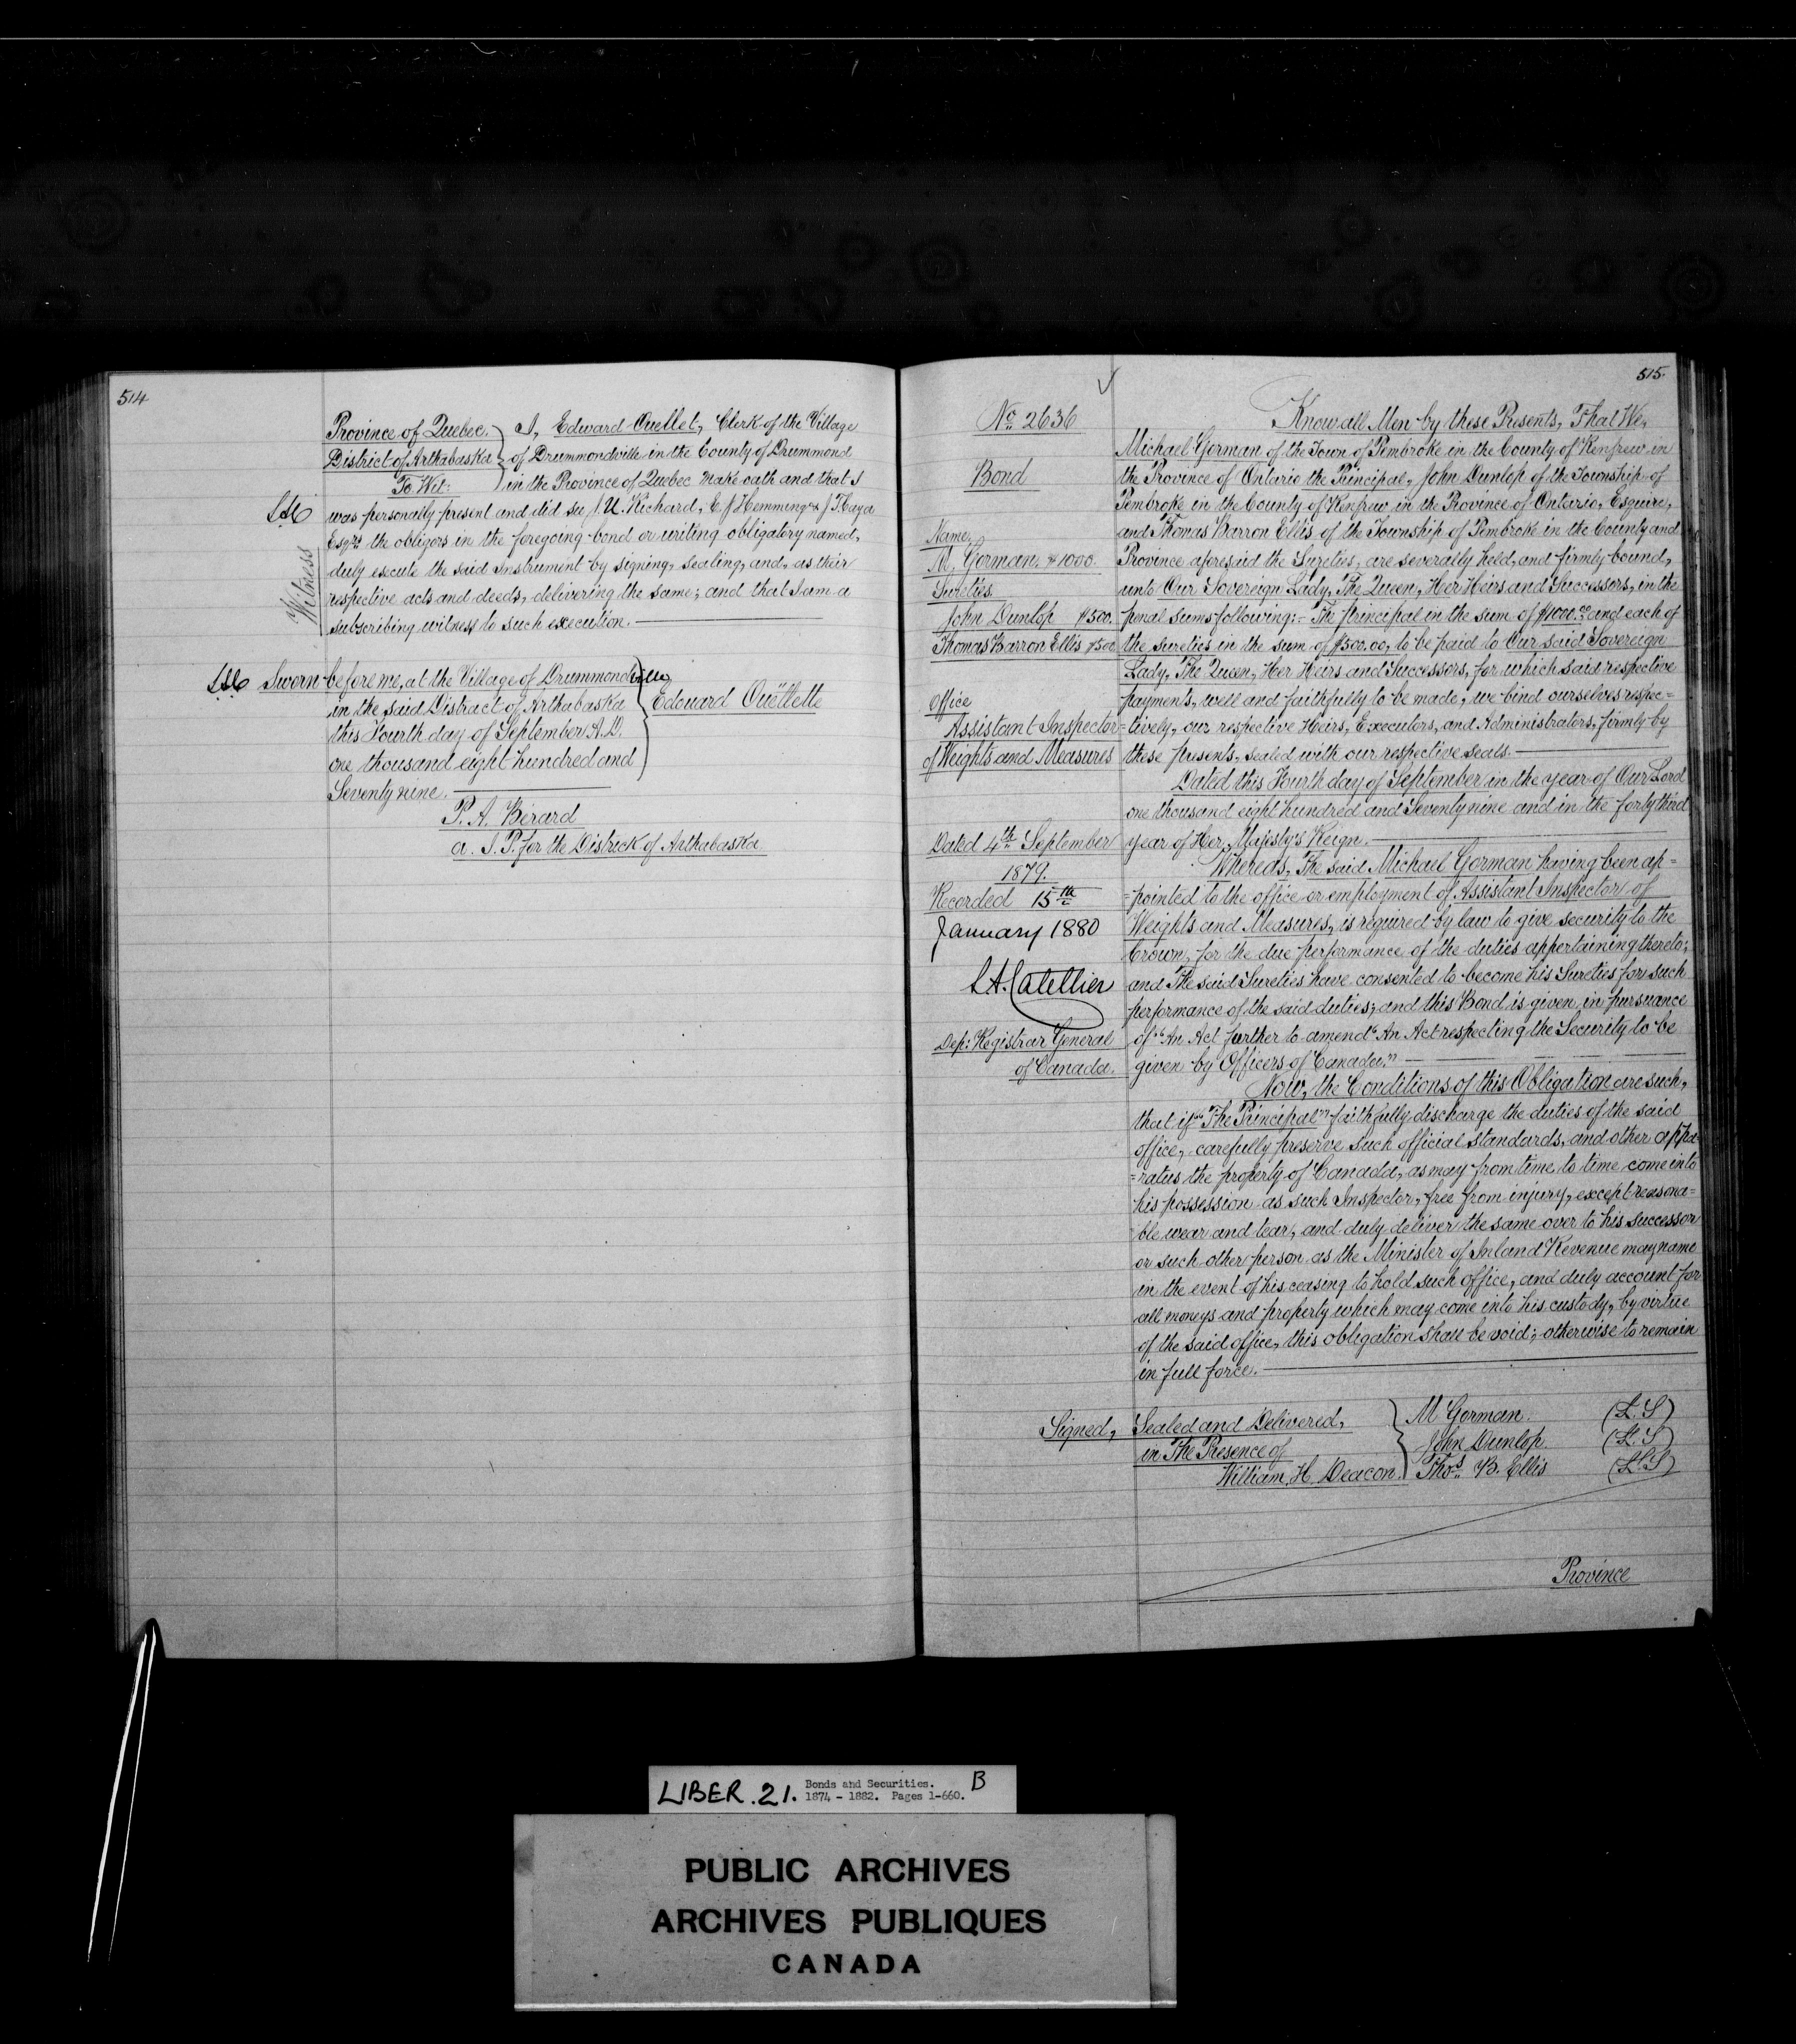 514
Province of Quebec. } I, Edward Ouellet, Clerk of the Village
District of Arthabaska } of Drummondville in the County of Drummond
To Wit: } in the Province of Quebec make oath and that I
was personally present and did see J. U. Richard, E. J. Hemming & J
Esqrs the obligors in the foregoing bond or writing obligatory named,
duly execute the said Instrument by signing, sealing, and, as their
respective acts and deeds, delivering the same; and that I am a
subscribing witness to such execution.
Witness
Sworn before me, at the Village of Drummondville
in the said District of Arthabaska
this Fourth day of September A.D.
one thousand eight hundred and
Seventy nine.
Edouard Ouëllette
P. A. Bérard
a. J. P. for the District of Arthabaska
515
No 2636
Bond
Name,
M. Gorman. $1000.
Sureties
John Dunlop $500.
Thomas Barron Ellis $500
Office
Assistant Inspector
of Weights and Measures
Dated 4th September
1879.
Recorded 15th
January 1880
L.A. Catellier
Dep: Registrar General
of Canada.
Know all Men by these Presents, That We,
Michael Gorman of the Town of Pembroke in the County of Renfrew in
the Province of Ontario the Principal, John Dunlop of the Township of
Pembroke in the County of Renfrew in the Province of Ontario, Esquire,
and Thomas Barron Ellis of the Township of Pembroke in the County and
Province aforesaid the Sureties, are severally held, and firmly bound,
unto Our Sovereign Lady, The Queen, Her Heirs and Successors, in the
penal sums following:- The Principal in the sum of $1000.00 and each of
the sureties in the sum of $500.00, to be paid to Our said Sovereign
Lady, The Queen, Her Heirs and Successors, for which said respective
payments, well and faithfully to be made, we bind ourselves respec=
=tively, our respective Heirs, Executors, and Administrators, firmly by
these presents, sealed with our respective seals.
Dated this Fourth day of September in the year of Our Lord
one thousand eight hundred and Seventy nine and in the forty third
year of Her Majesty's Reign.
Whereas, The said Michael Gorman having been ap=
=pointed to the office or employment of Assistant Inspector of
Weights and Measures, is required by law to give security to the
Crown, for the due performance of the duties appertaining thereto;
and The said Sureties have consented to become his Sureties for such
performance of the said duties; and this Bond is given in pursuance
of "An Act further to amend "An Act respecting the Security to be
given by Officers of Canada."
Now, the Conditions of this Obligation are such,
that if "The Principal" faithfully discharge the duties of the said
office, carefully preserve such official standards, and other appa-
=ratus the property of Canada, as may from time to time come into
his possession as such Inspector, free from injury, except reasona=
ble wear and tear, and duly deliver the same over to his successor
or such other person as the Minister of Inland Revenue may name
in the event of his ceasing to hold such office, and duly account for
all moneys and property which may come into his custody, by virtue
of the said office, this obligation shall be void; otherwise to remain
in full force.
Signed, Sealed and Delivered, } M Gorman. (L.S)
in The Presence of } John Dunlop. (L.S)
William H Deacon. } Thos B. Ellis (L.S)
Province
LIBER.21. Bonds and Securities. B
1874 - 1882. Pages 1-660.
PUBLIC ARCHIVES
ARCHIVES PUBLIQUES
CANADA